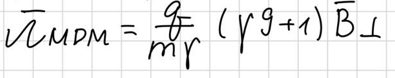 Ω̄_MDM = q/(mγ) (γg+1) B̄⊥